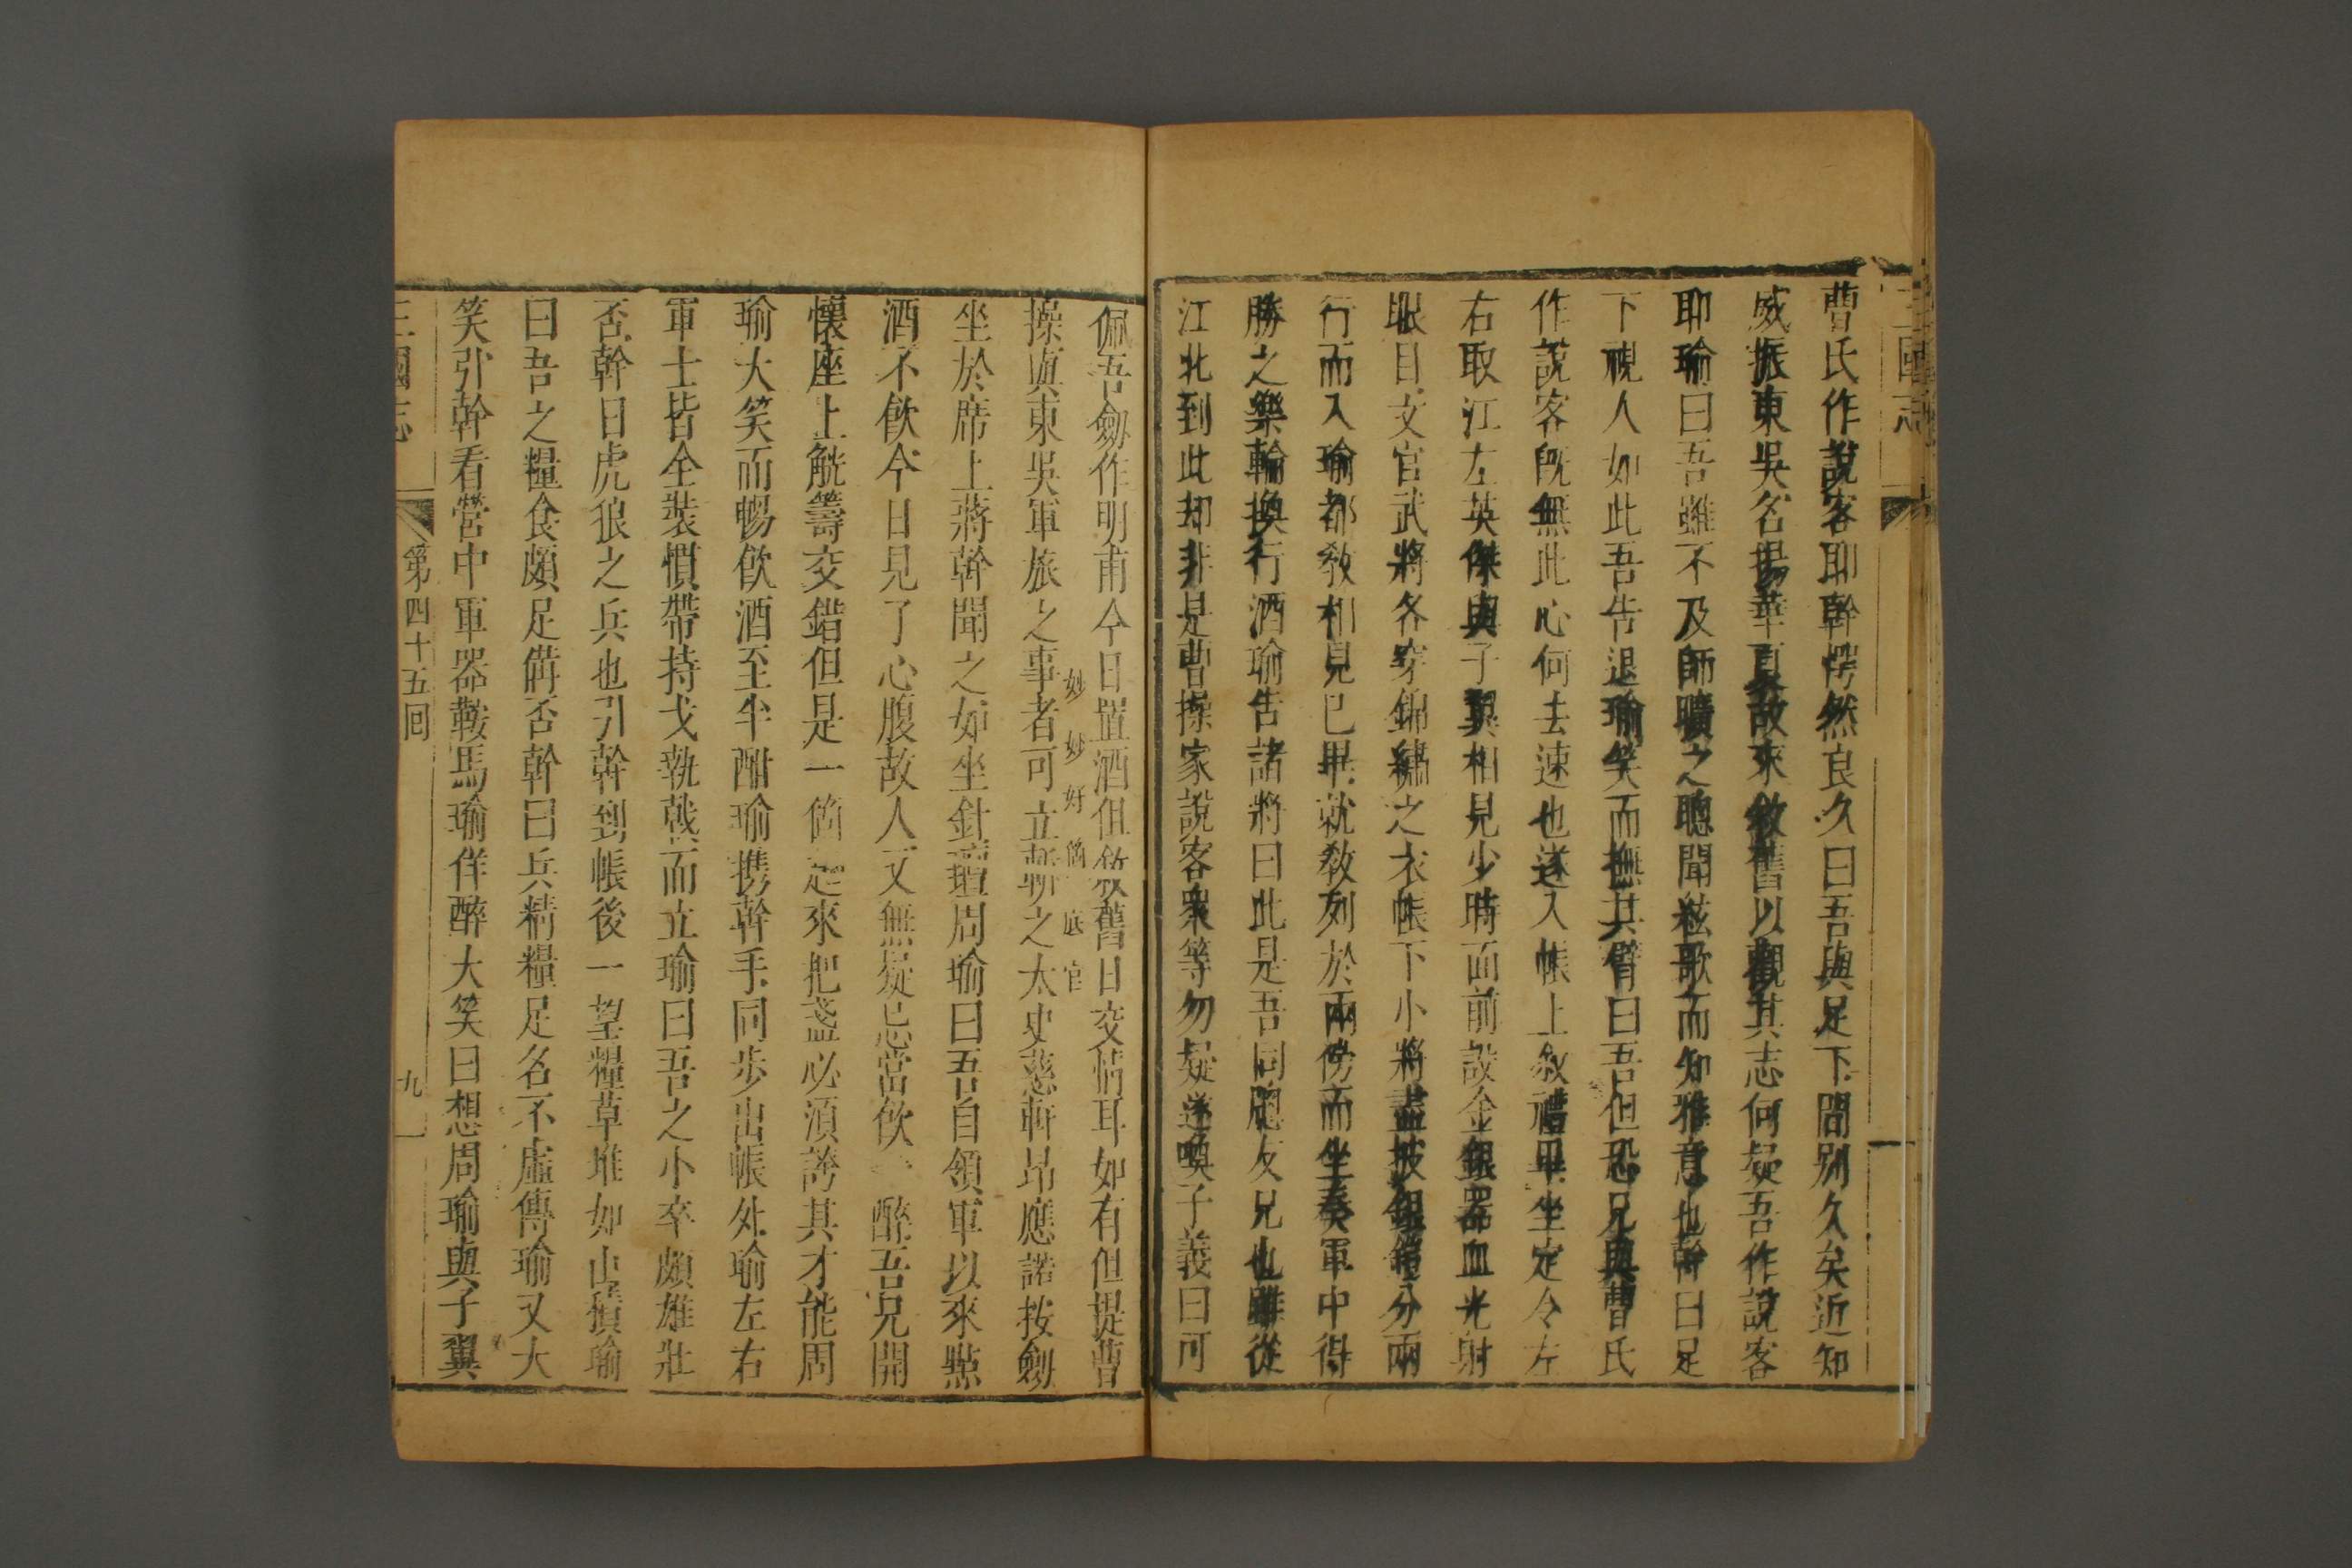 三國志
曹氏作說客耶幹愕然良久曰吾與足下間別久矣近知
威振東吳名揚華夏故來敘舊以觀其志何疑吾作說客
耶瑜曰吾雖不及師曠之聰聞絃歌而知雅意也幹曰足
下視人如此吾告退瑜笑而撫其臂曰吾但恐兄與曹氏
作說客既無此心何去速也遂入帳上敘禮畢坐定令左
右取江左英傑與子翼相見少時面前設金銀器皿光射
眼目文官武將各穿錦繡之衣帳下小將盡披銀鎧分兩
行而入瑜都敎相見已畢就敎列於兩傍而坐奏軍中得
勝之樂輪換行酒瑜告諸將曰此是吾同窻友兄也雖從
江北到此却非是曹操家說客衆等勿疑遂喚子義曰可
佩吾劒作明甫今日置酒但敘舊日交情耳如有但提曹
操與東吳軍旅之事者可立斬之太史慈軒昂應諾按劒
妙妙好個底官
坐於席上蔣幹聞之如坐針氊周瑜曰吾自領軍以來點
酒不飲今日見了心腹故人又無疑忌當飲一醉吾兄開
懷座上觥籌交錯但是一個起來把盞必須誇其才能周
瑜大笑而暢飲酒至半酣瑜携幹手同步出帳外瑜左右
軍士皆全裝慣帶持戈執戟而立瑜曰吾之小卒頗雄壯
否幹曰虎狼之兵也引幹到帳後一望糧草堆如山積瑜
曰吾之糧食頗足備否幹曰兵精糧足名不虛傳瑜又大
笑引幹看營中軍器鞍馬瑜佯醉大笑曰想周瑜與子翼
三國志 第四十五囘 九